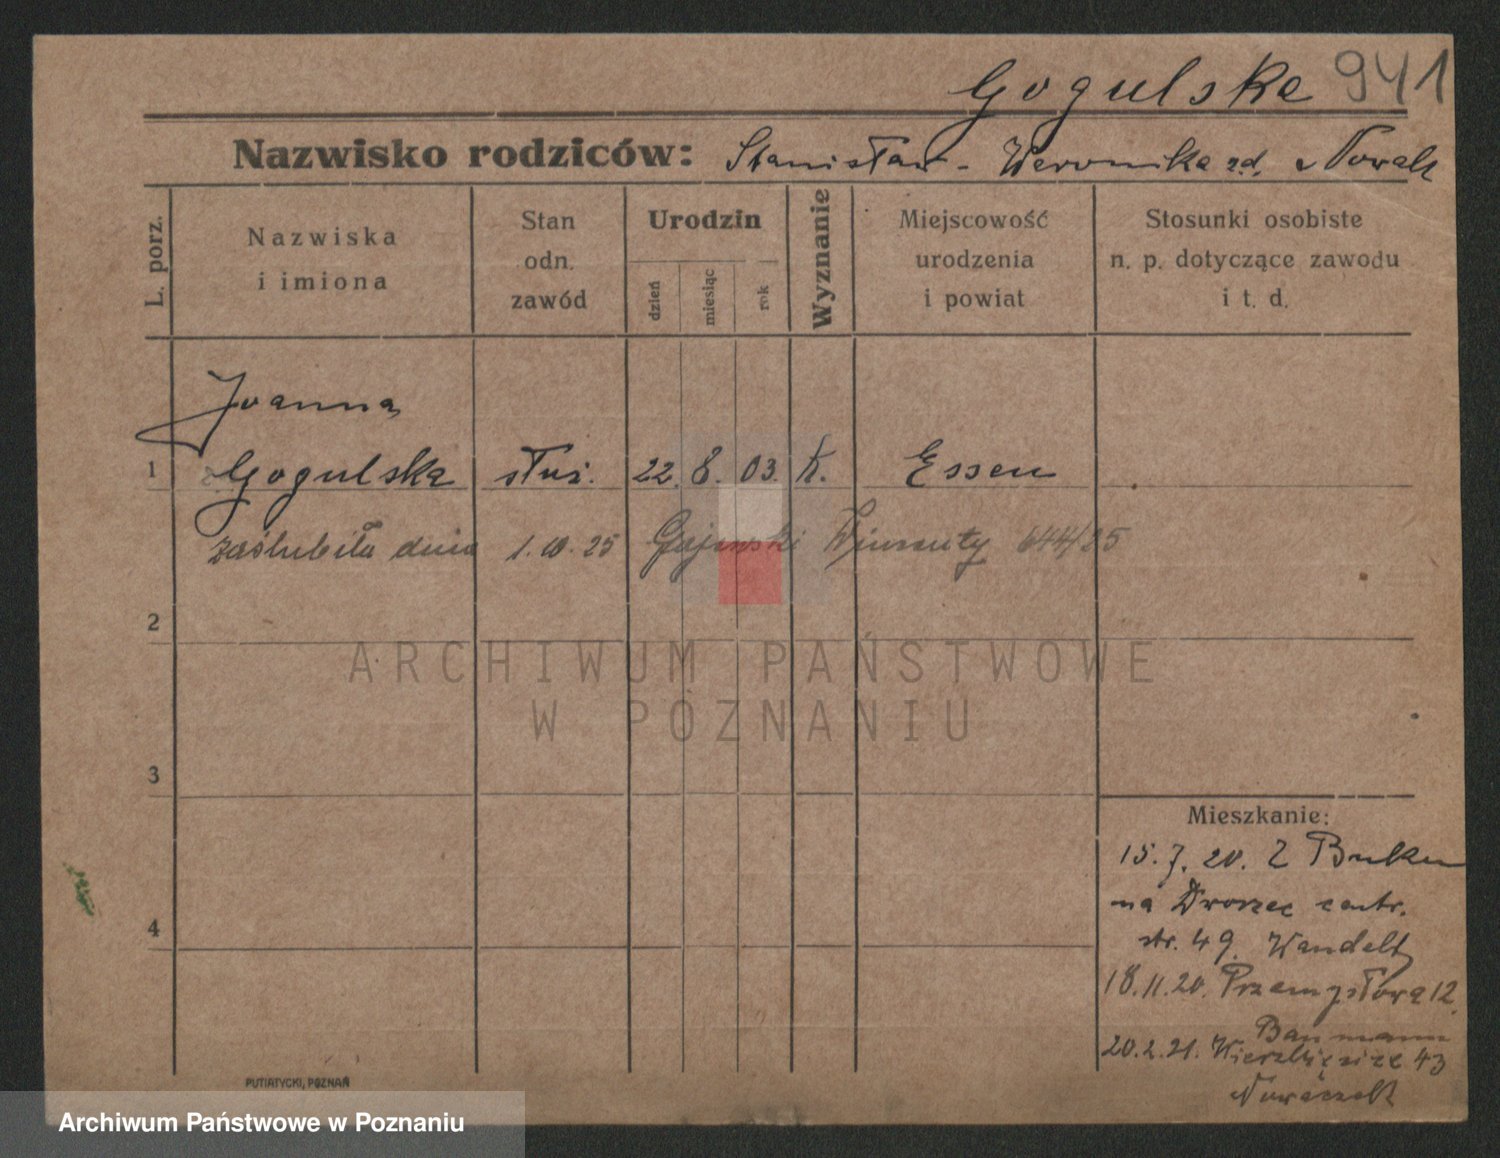 Gogulska 941
Nazwisko rodziców: Stanisław - Weronika zd. Nowak
L. porz.
Nazwiska
i imiona
Stan
odn.
zawód
Urodzin
dzień
miesiąc
rok
Wyznanie
Miejscowość
urodzenia
i powiat
Stosunki osobiste
n. p. dotyczące zawodu
i t. d.
Joanna
1 Gogulska służ. 22. 8. 03. K. Essen
zaślubiła dnia 1.10.25 Gajewski Wincenty 644/25
2
ARCHIWUM PAŃSTWOWE
W POZNANIU
3
Mieszkanie:
15.7.20. Z Buku
na Dworzec centr.
4
str. 49. Wandelt
18.11.20. Przemysłowa 12.
Baumann
20.2.21. Wierzbięcice 43
Nowaczak
PUTIATYCKI, POZNAŃ
Archiwum Państwowe w Poznaniu